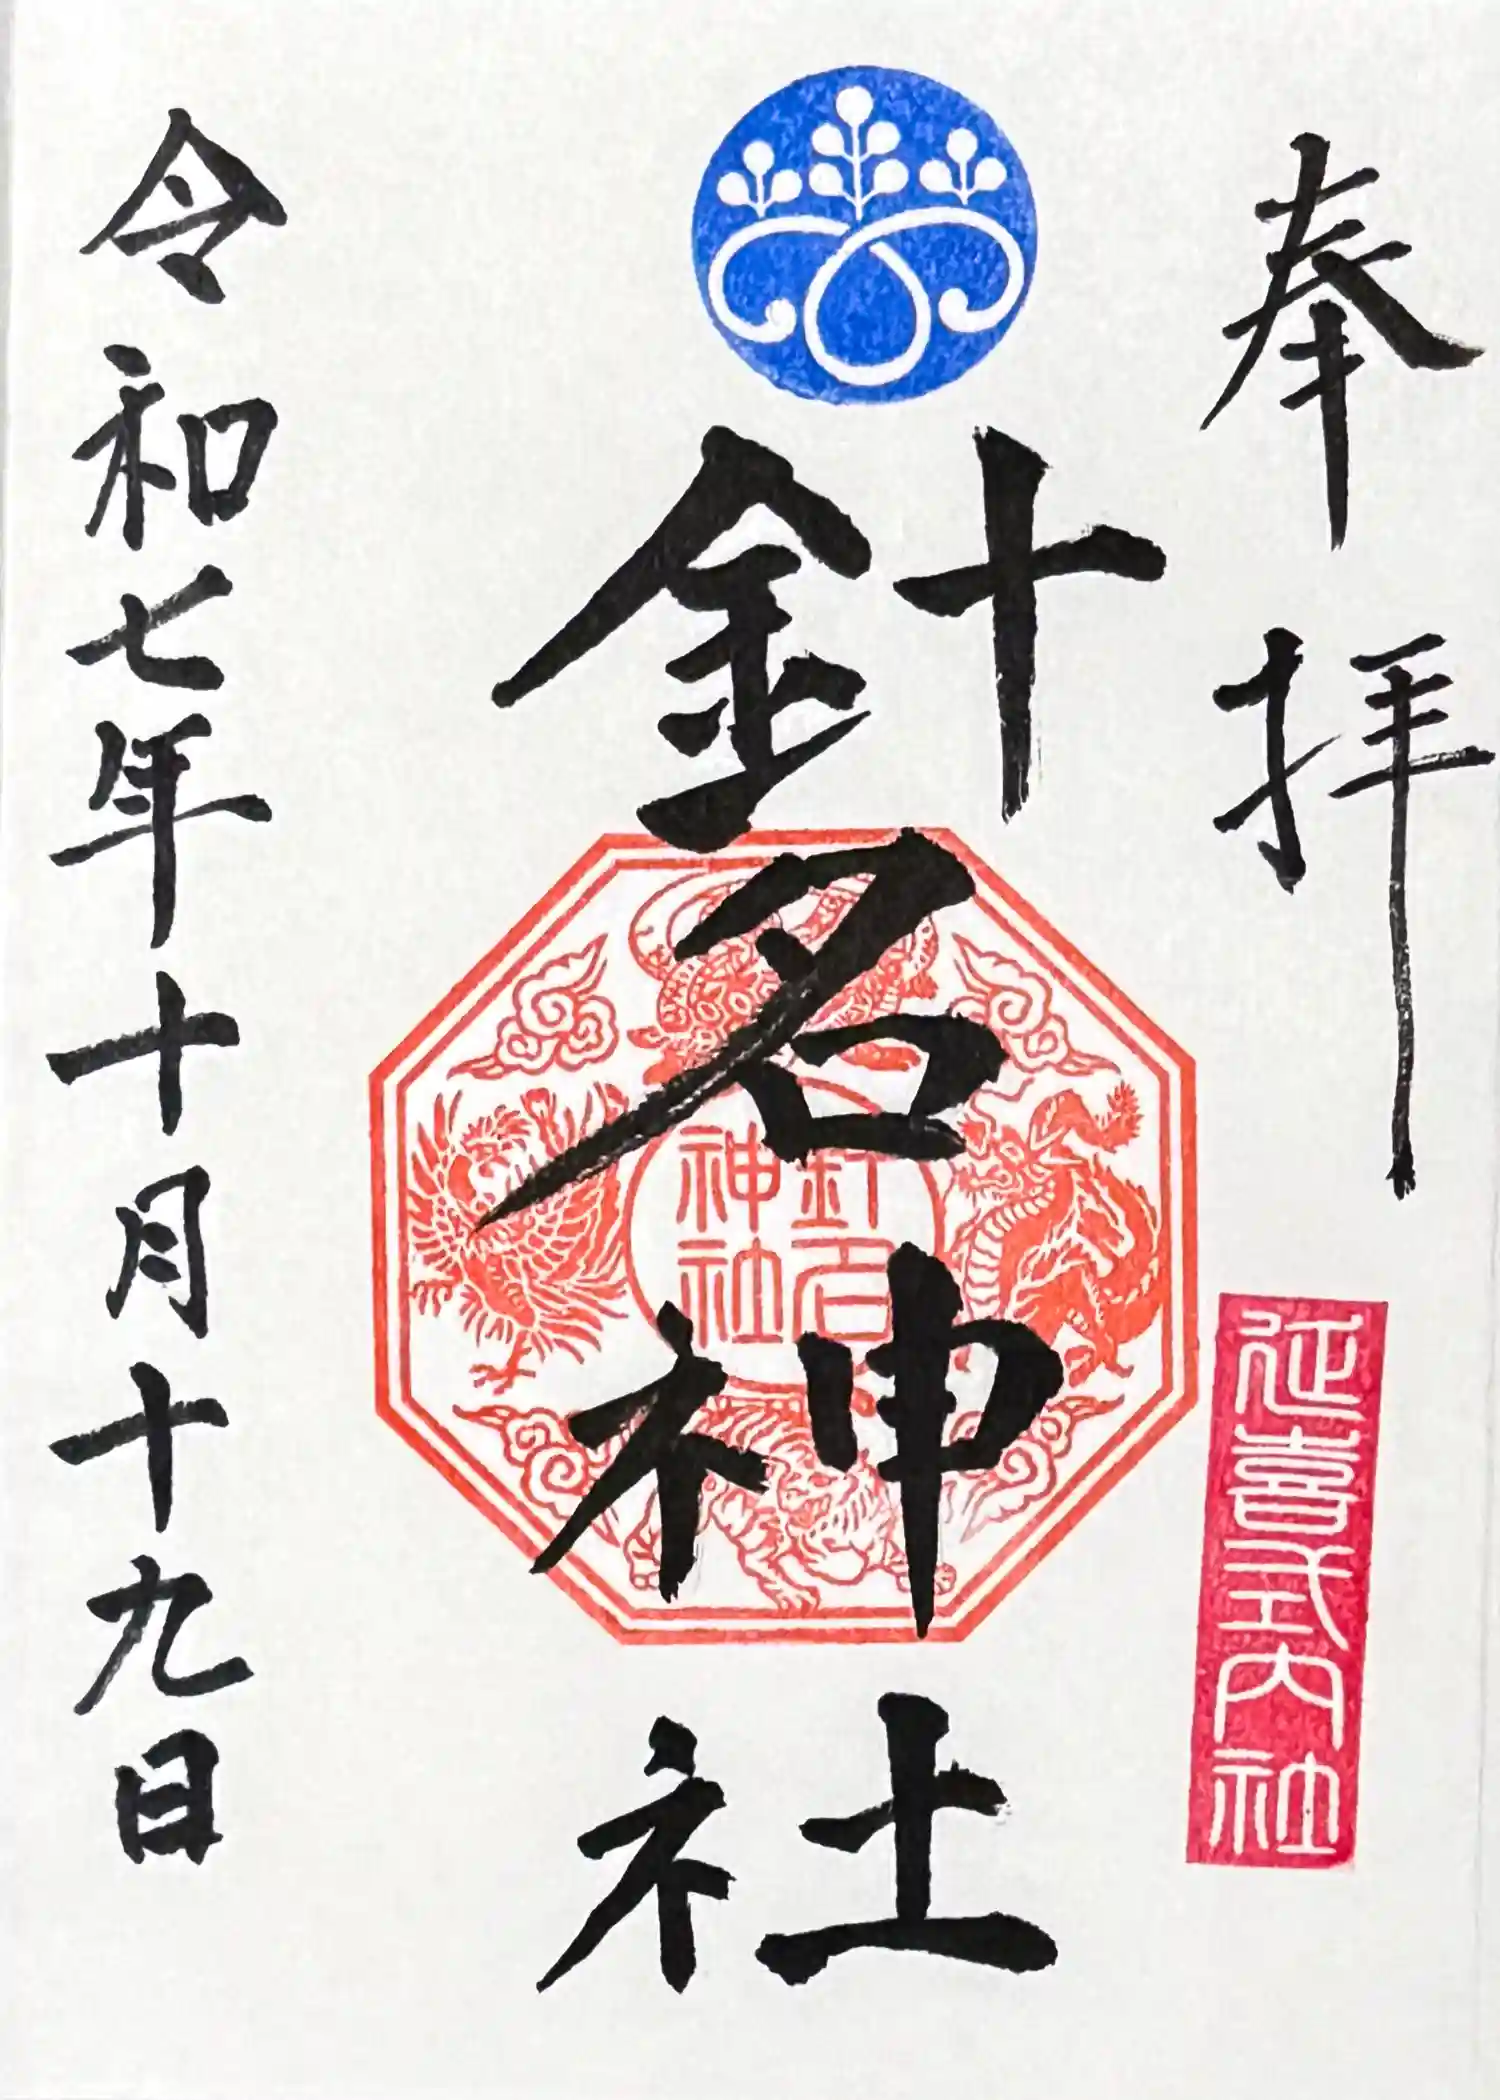 奉拝
延喜式内社
針名神社
針名
神社
令和七年十月十九日